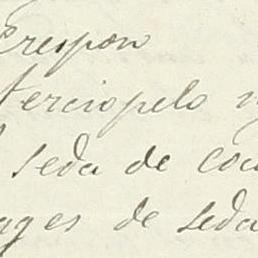 Crespon
terciopelo
seda de
de seda